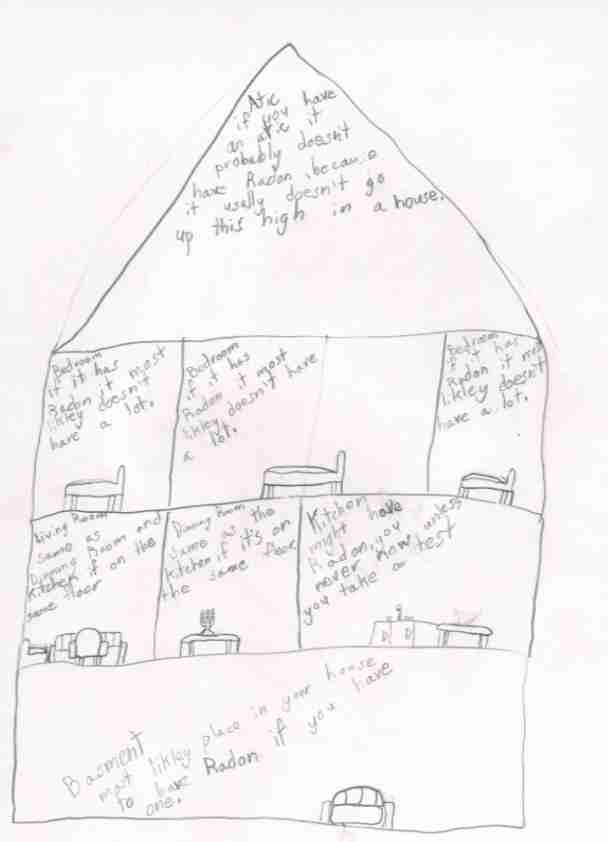 Atic
if you have
an atic it
probably doesn't
have Radon, because
it usally doesn't go
up this high in a house.
Bedroom
if it has
Radon it most
likley doesn't
have a lot.
Bedroom
if it has
Radon it most
likley doesn't have
a lot.
Bedroom
if it has
Radon it most
likley doesn't
have a lot.
Living Room
same as
Dinning Room and
Kitchen if on the
same floor
Dinning Room
same as the
Kitchen, if it's on
the same floor
Kitchen
might have
Radon, you
never know unless
you take a test
Basment
most likley place in your house
to have Radon if you have
one.